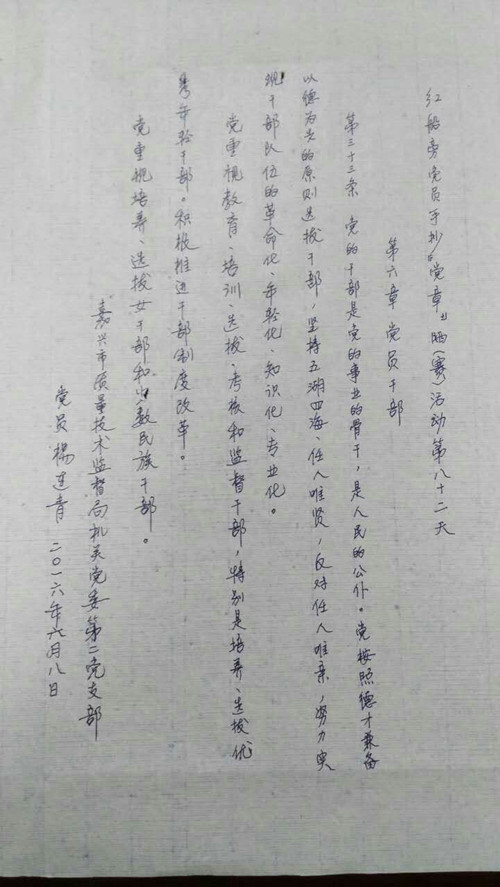 红船旁党员手抄《党章》晒(赛)活动第八十二天
第六章 党员干部
第三十三条 党的干部是党的事业的骨干,是人民的公仆。党按照德才兼备
以德为先的原则选拔干部,坚持五湖四海、任人唯贤,反对任人唯亲,努力实
现干部队伍的革命化、年轻化、知识化、专业化。
党重视教育、培训、选拔、考核和监督干部,特别是培养、选拔优
秀年轻干部。积极推进干部制度改革。
党重视培养、选拔女干部和少数民族干部。
嘉兴市质量技术监督局机关党委第二党支部
党员 杨连青 二〇一六年六月八日